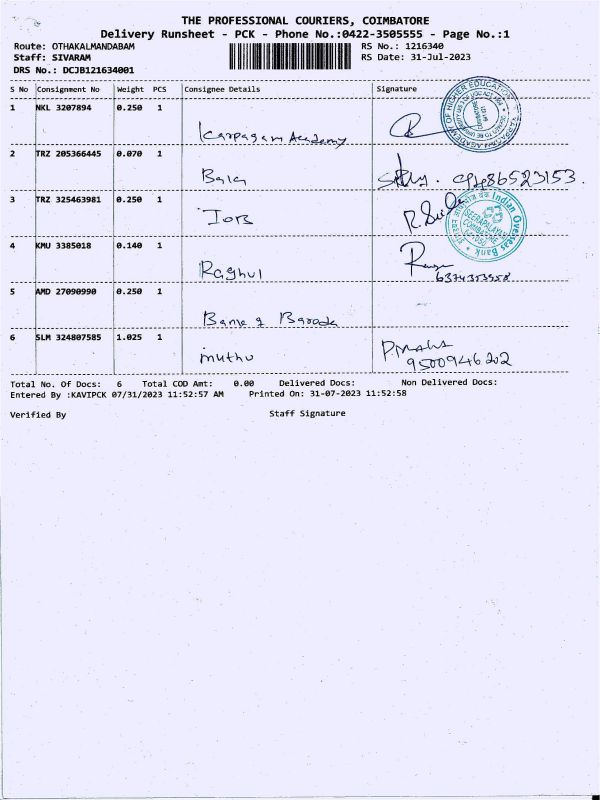 THE PROFESSIONAL COURIERS, COIMBATORE
Delivery Runsheet - PCK - Phone No.:0422-3505555 - Page No.:1
Route: OTHAKALMANDABAM
RS No.: 1216340
Staff: SIVARAM
RS Date: 31-Jul-2023
DRS No.: DCJB121634001
S No Consignment No Weight PCS Consignee Details Signature
1 NKL 3207894 0.250 1
Karpagam Academy
2 TRZ 205366445 0.070 1
Bala
3 TRZ 325463981 0.250 1
IOB
Indian Overseas Bank
4 KMU 3385018 0.140 1
Raghul
6374353958
5 AMD 27090990 0.250 1
Bank of Baroda
6 SLM 324807585 1.025 1
muthu
9500946202
Total No. Of Docs: 6 Total COD Amt: 0.00 Delivered Docs: Non Delivered Docs:
Entered By :KAVIPCK 07/31/2023 11:52:57 AM Printed On: 31-07-2023 11:52:58
Verified By Staff Signature